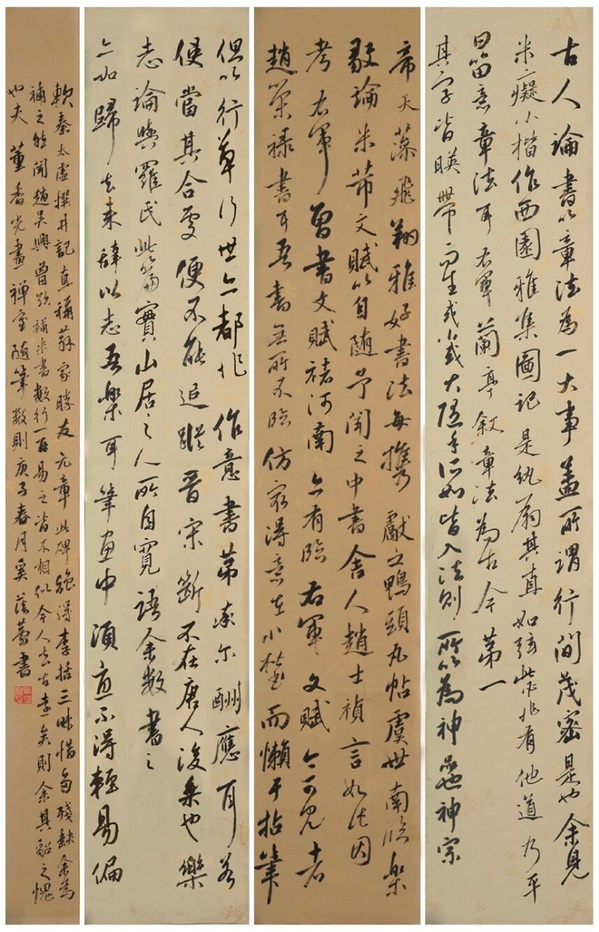 古人論書以章法為一大事蓋所謂行間茂密是也余見
米癡小楷作西園雅集圖記是紈扇其直如弦此必非有他道乃平
日留意章法耳右軍蘭亭敘章法為古今第一
其字皆映帶而生或小或大隨手所如皆入法則所以為神品也神宗
帝天藻飛翔雅好書法每攜獻之鴨頭丸帖虞世南臨樂
毅論米芾文賦以自隨予聞之中書舍人趙士禎言如此因
考右軍曾書文賦褚河南亦有臨右軍文賦今可見者
趙榮祿書耳吾書無所不臨仿最得意在小楷而懶于拈筆
但以行草行世亦都非作意書第率尔酬應耳若
使當其合處便不能追蹤晉宋斷不在唐人後乘也樂
志論與羅氏此篇實山居之人所自寬語余數書之
亦如歸去來辭以志吾樂耳筆畫中須直不得輕易偏
軟秦太虛撰井記真稱蘇家勝友元章此碑絕得李括三昧惜為殘缺余為
補之然聞趙吳興曾欲補米書數行再易之皆不相似今人去古遠矣則余其貂之愧
也夫 董香光畫禪室隨筆數則庚子春月奚書